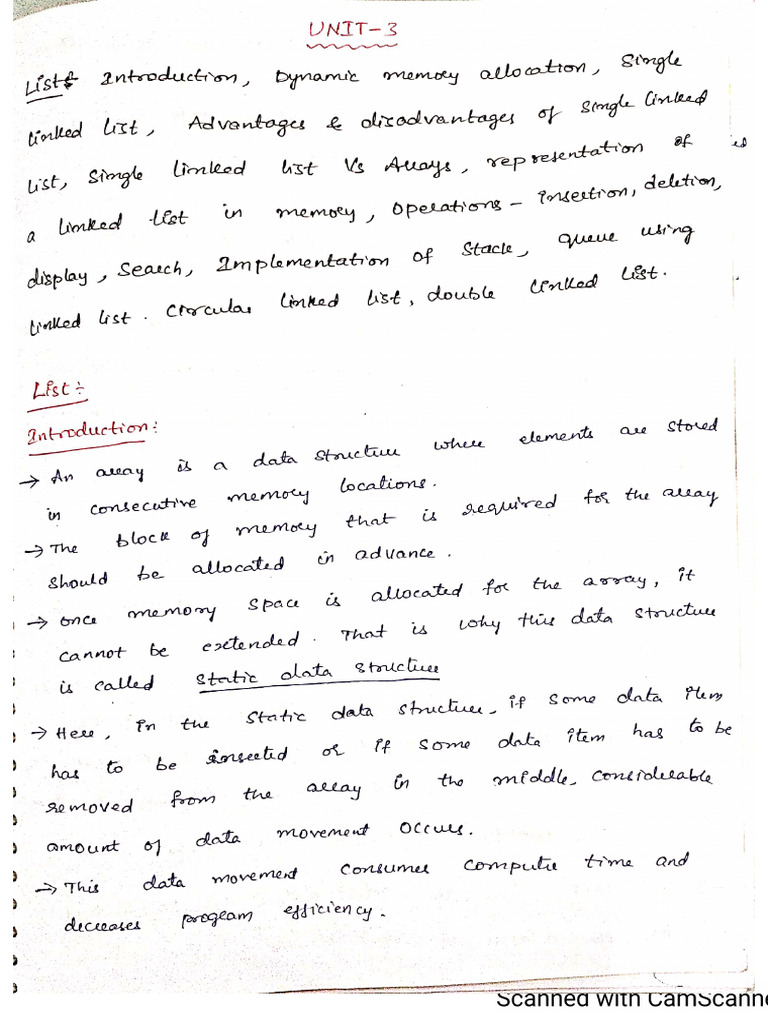 UNIT-3
Lists Introduction, Dynamic memory allocation, Single
linked list, Advantages & disadvantages of single linked
list, Single linked list Vs Arrays, representation of
a linked list in memory, Operations - insertion, deletion,
display, Search, Implementation of Stack, queue using
linked list. Circular linked list, double linked list.
List:
Introduction:
→ An array is a data structure where elements are stored
in consecutive memory locations.
→ The block of memory that is required for the array
should be allocated in advance.
→ once memory space is allocated for the array, it
cannot be extended. That is why this data structure
is called static data structure
→ Here, in the static data structure, if some data item
has to be inserted or if some data item has to be
removed from the array in the middle, considerable
amount of data movement occurs.
→ This data movement consumes computer time and
decreases program efficiency.
Scanned with CamScanne